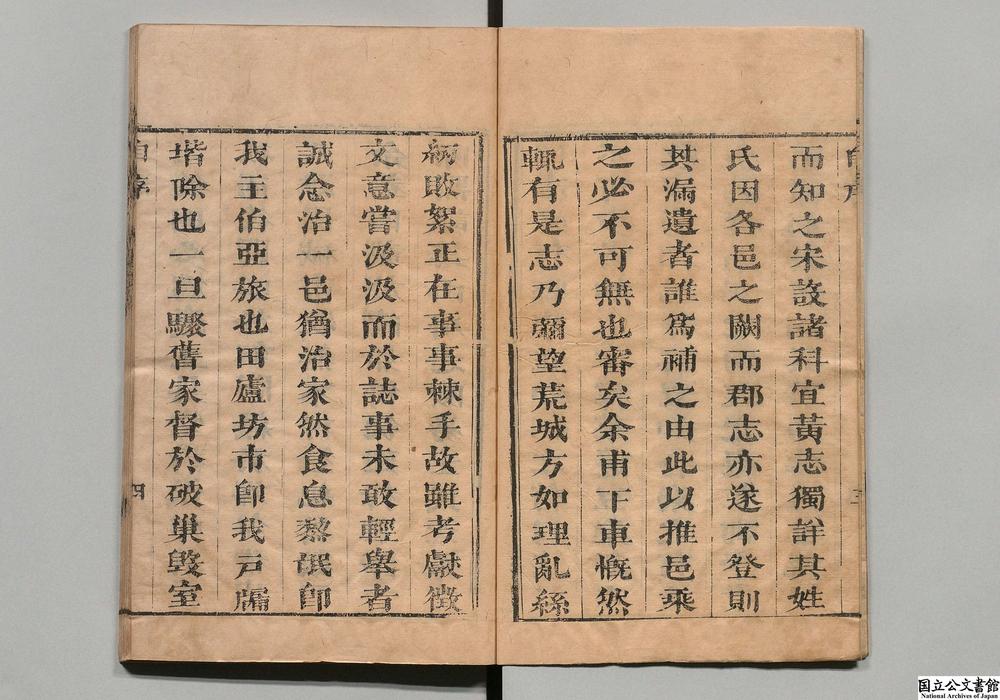 而知之宋設諸科宜黃志獨詳其姓
氏因各邑之闕而郡志亦遂不登則
其漏遺者誰為補之由此以推邑乘
之必不可無也審矣余甫下車慨然
輒有是志乃彌望荒城方如理亂絲
敗絮正在事事棘手故雖考獻徵
文意當汲汲而於誌事未敢輕舉者
誠念治一邑猶治家然食息黎氓卽
我主伯亞旅也田廬坊市卽我戶牖
堦除也一旦驟舊家督於破巢毀室
自序
四
国立公文書館
National Archives of Japan